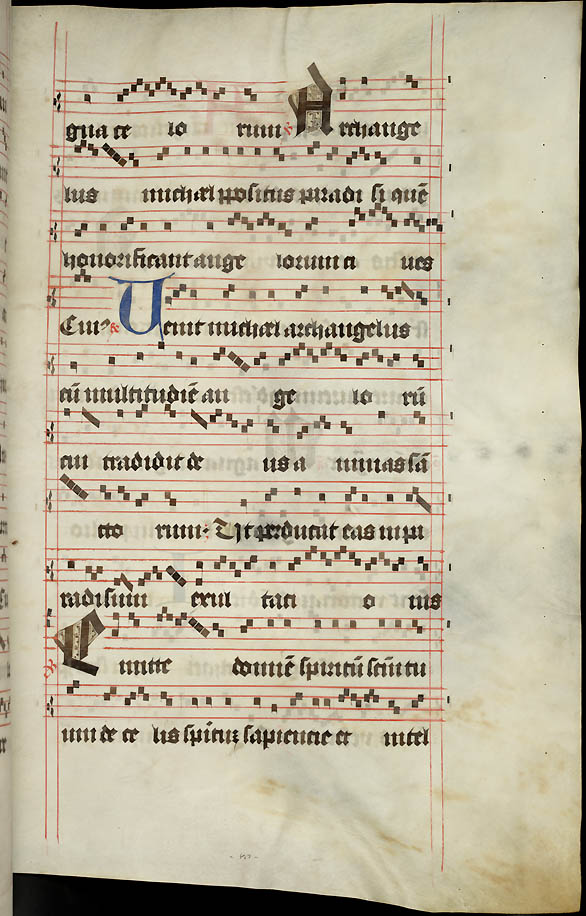 gna ce lo rum Archange
lus michael positus paradi si quē
honorificant ange lorum ci ves
Cui℣ Venit michael archangelus
cū multitudiē an ge lo rū
cui tradidit de us a nimas sā
cto rum: Ut perducat eas in pa
radisum exul tati o nis
℟ Emitte domīe spiritū sctm tu
um de ce lis spiritū sapiencie et intel